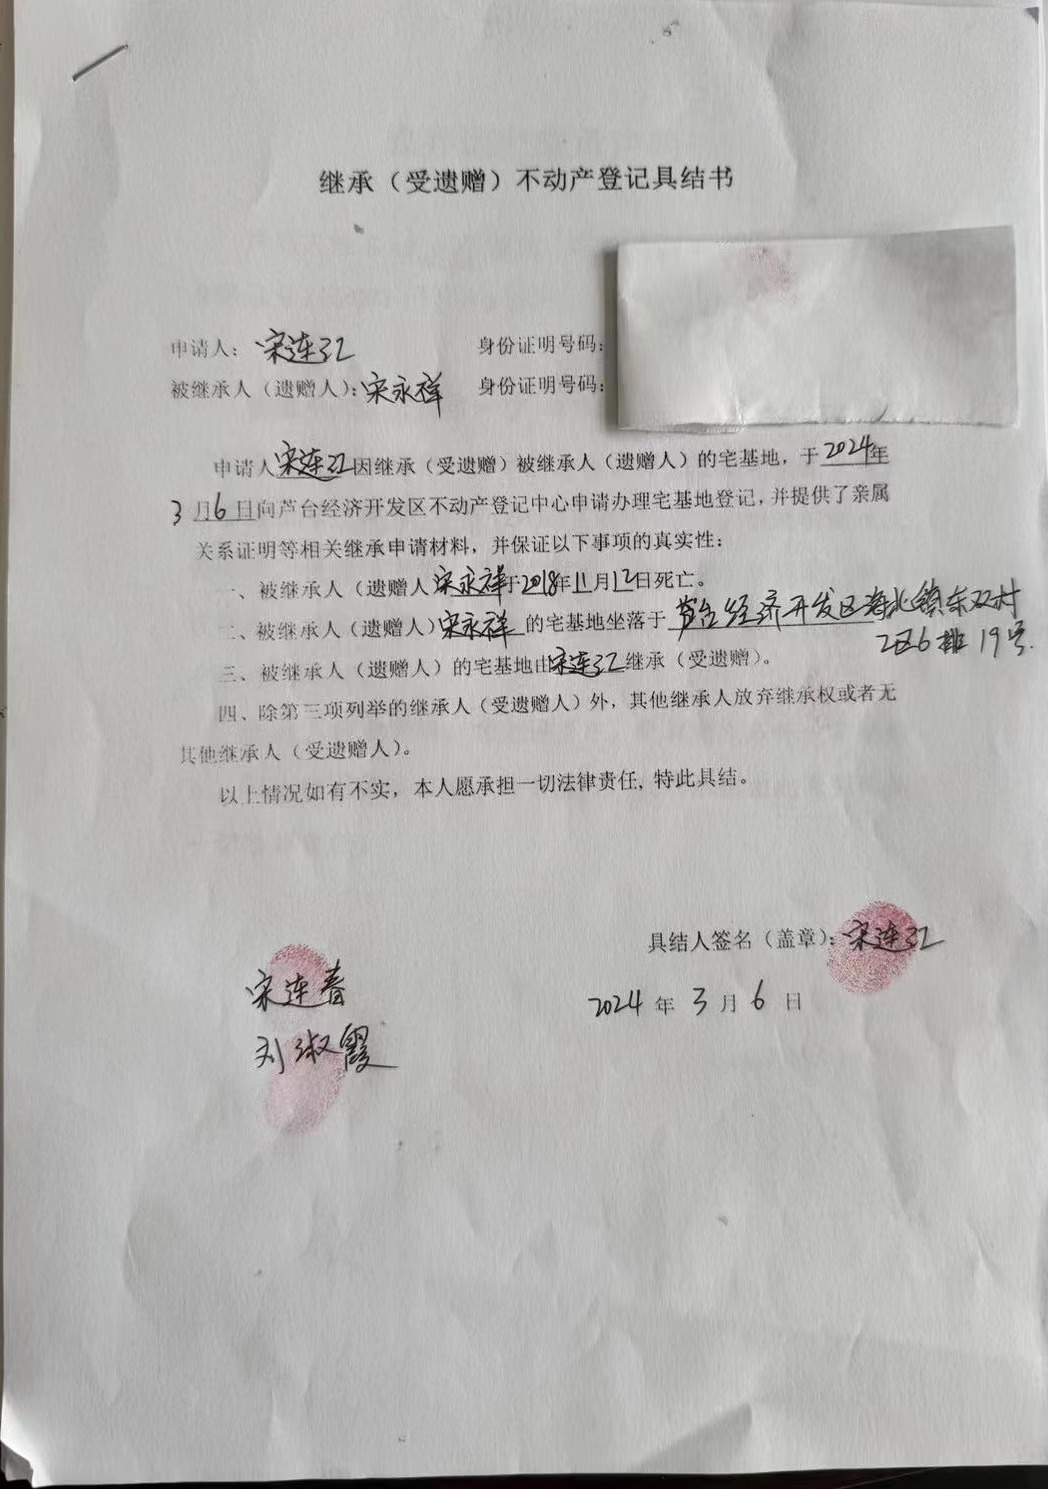 继承（受遗赠）不动产登记具结书
申请人：宋连江 身份证明号码：
被继承人（遗赠人）：宋永祥 身份证明号码：
申请人宋连江因继承（受遗赠）被继承人（遗赠人）的宅基地，于2024年
3月6日向芦台经济开发区不动产登记中心申请办理宅基地登记，并提供了亲属
关系证明等相关继承申请材料，并保证以下事项的真实性：
一、被继承人（遗赠人宋永祥于2018年11月12日死亡。
二、被继承人（遗赠人）宋永祥的宅基地坐落于芦台经济开发区海北镇东双村
2区6排19号.
三、被继承人（遗赠人）的宅基地由宋连江继承（受遗赠）。
四、除第三项列举的继承人（受遗赠人）外，其他继承人放弃继承权或者无
其他继承人（受遗赠人）。
以上情况如有不实，本人愿承担一切法律责任，特此具结。
具结人签名（盖章）：宋连江
宋连春
2024年3月6日
刘淑霞